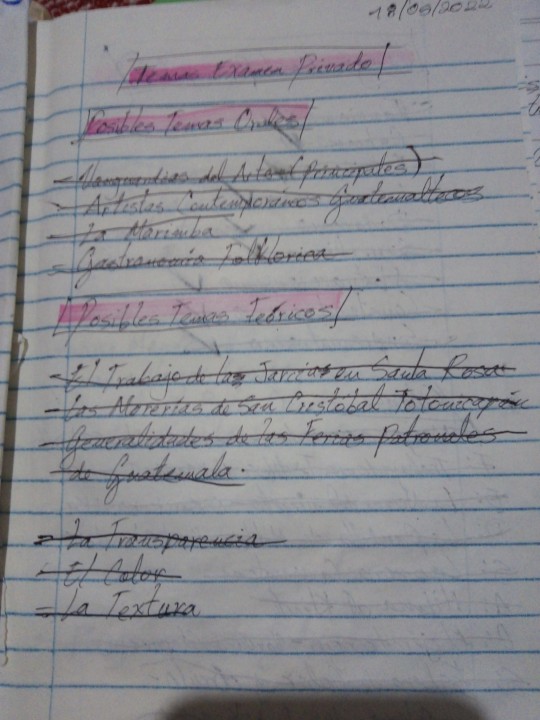 18/05/2022
Temas Examen Privado
Posibles Temas Orales
- Vanguardias del Arte (Principales)
- Artistas Contemporáneos Guatemaltecos
- La Marimba
- Gastronomía Folklorica
Posibles Temas Teóricos
- El Trabajo de las Jarcias en Santa Rosa
- Las Morerías de San Cristobal Totonicapán
- Generalidades de las Ferias Patronales
de Guatemala.
- La Transparencia
- El Color
- La Textura